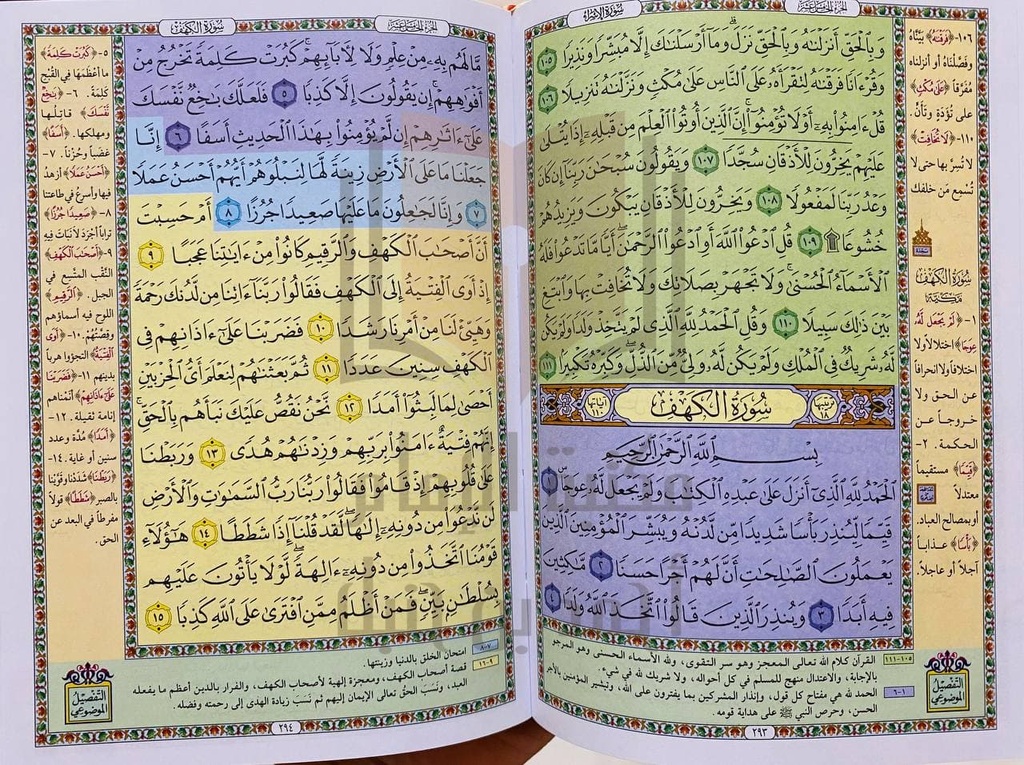 الجزء الخامس عشر
سورة الإسراء
وَبِالْحَقِّ أَنزَلْنَاهُ وَبِالْحَقِّ نَزَلَ وَمَا أَرْسَلْنَاكَ إِلَّا مُبَشِّرًا وَنَذِيرًا ١٠٥
وَقُرْءَانًا فَرَقْنَاهُ لِتَقْرَأَهُ عَلَى النَّاسِ عَلَىٰ مُكْثٍ وَنَزَّلْنَاهُ تَنزِيلًا ١٠٦
قُلْ ءَامِنُوا بِهِ أَوْ لَا تُؤْمِنُوا إِنَّ الَّذِينَ أُوتُوا الْعِلْمَ مِن قَبْلِهِ إِذَا يُتْلَىٰ
عَلَيْهِمْ يَخِرُّونَ لِلْأَذْقَانِ سُجَّدًا ١٠٧ وَيَقُولُونَ سُبْحَانَ رَبِّنَا إِن كَانَ
وَعْدُ رَبِّنَا لَمَفْعُولًا ١٠٨ وَيَخِرُّونَ لِلْأَذْقَانِ يَبْكُونَ وَيَزِيدُهُمْ
خُشُوعًا ۩ ١٠٩ قُلِ ادْعُوا اللَّهَ أَوِ ادْعُوا الرَّحْمَٰنَ أَيًّا مَّا تَدْعُوا فَلَهُ
الْأَسْمَاءُ الْحُسْنَىٰ وَلَا تَجْهَرْ بِصَلَاتِكَ وَلَا تُخَافِتْ بِهَا وَابْتَغِ
بَيْنَ ذَٰلِكَ سَبِيلًا ١١٠ وَقُلِ الْحَمْدُ لِلَّهِ الَّذِي لَمْ يَتَّخِذْ وَلَدًا وَلَمْ يَكُن
لَّهُ شَرِيكٌ فِي الْمُلْكِ وَلَمْ يَكُن لَّهُ وَلِيٌّ مِّنَ الذُّلِّ وَكَبِّرْهُ تَكْبِيرًا ١١١
سُورَةُ الْكَهْفِ
بِسْمِ اللَّهِ الرَّحْمَٰنِ الرَّحِيمِ
الْحَمْدُ لِلَّهِ الَّذِي أَنزَلَ عَلَىٰ عَبْدِهِ الْكِتَابَ وَلَمْ يَجْعَل لَّهُ عِوَجًا ١
قَيِّمًا لِّيُنذِرَ بَأْسًا شَدِيدًا مِّن لَّدُنْهُ وَيُبَشِّرَ الْمُؤْمِنِينَ الَّذِينَ
يَعْمَلُونَ الصَّالِحَاتِ أَنَّ لَهُمْ أَجْرًا حَسَنًا ٢ مَّاكِثِينَ
فِيهِ أَبَدًا ٣ وَيُنذِرَ الَّذِينَ قَالُوا اتَّخَذَ اللَّهُ وَلَدًا ٤
١٠٦- ﴿فَرَقْنَاهُ﴾ بيّنّاه
وفصّلناه أو أنزلناه
مُفرّقاً ﴿عَلَىٰ مُكْثٍ﴾
على تُؤدَةٍ وتأنٍّ.
١١٠- ﴿لَا تُخَافِتْ﴾
لا تُسِرَّ بها حتى لا
تُسمِع مَن خلفك
سورة الكهف
مكية
١- ﴿لَمْ يَجْعَل لَّهُ
عِوَجًا﴾ اختلالاً ولا
اختلافاً ولا انحرافاً
عن الحق ولا
خروجاً عن
الحكمة. ٢-
﴿قَيِّمًا﴾ مستقيماً
معتدلاً
أو بمصالح العباد.
﴿بَأْسًا﴾ عذاباً
آجلاً أو عاجلاً.
١٠٥-١١١ القرآن كلام الله تعالى المعجز وهو سر التقوى، ولله الأسماء الحسنى وهو المرجو
بالإجابة، والاعتدال منهج للمسلم في كل أحواله، ولا شريك لله في شيء.
١-٦ الحمد لله هي مفتاح كل قول، وإنذار المشركين بما يفترون على الله، وتبشير المؤمنين بالأجر
الحسن، وحرص النبي ﷺ على هداية قومه.
التفصيل
الموضوعي
٢٩٣
الجزء الخامس عشر
سورة الكهف
مَّا لَهُم بِهِ مِنْ عِلْمٍ وَلَا لِآبَائِهِمْ كَبُرَتْ كَلِمَةً تَخْرُجُ مِنْ
أَفْوَاهِهِمْ إِن يَقُولُونَ إِلَّا كَذِبًا ٥ فَلَعَلَّكَ بَاخِعٌ نَّفْسَكَ
عَلَىٰ ءَاثَارِهِمْ إِن لَّمْ يُؤْمِنُوا بِهَٰذَا الْحَدِيثِ أَسَفًا ٦ إِنَّا
جَعَلْنَا مَا عَلَى الْأَرْضِ زِينَةً لَّهَا لِنَبْلُوَهُمْ أَيُّهُمْ أَحْسَنُ عَمَلًا
٧ وَإِنَّا لَجَاعِلُونَ مَا عَلَيْهَا صَعِيدًا جُرُزًا ٨ أَمْ حَسِبْتَ
أَنَّ أَصْحَابَ الْكَهْفِ وَالرَّقِيمِ كَانُوا مِنْ ءَايَاتِنَا عَجَبًا ٩
إِذْ أَوَى الْفِتْيَةُ إِلَى الْكَهْفِ فَقَالُوا رَبَّنَا ءَاتِنَا مِن لَّدُنكَ رَحْمَةً
وَهَيِّئْ لَنَا مِنْ أَمْرِنَا رَشَدًا ١٠ فَضَرَبْنَا عَلَىٰ ءَاذَانِهِمْ فِي
الْكَهْفِ سِنِينَ عَدَدًا ١١ ثُمَّ بَعَثْنَاهُمْ لِنَعْلَمَ أَيُّ الْحِزْبَيْنِ
أَحْصَىٰ لِمَا لَبِثُوا أَمَدًا ١٢ نَّحْنُ نَقُصُّ عَلَيْكَ نَبَأَهُم بِالْحَقِّ
إِنَّهُمْ فِتْيَةٌ ءَامَنُوا بِرَبِّهِمْ وَزِدْنَاهُمْ هُدًى ١٣ وَرَبَطْنَا
عَلَىٰ قُلُوبِهِمْ إِذْ قَامُوا فَقَالُوا رَبُّنَا رَبُّ السَّمَاوَاتِ وَالْأَرْضِ
لَن نَّدْعُوَا مِن دُونِهِ إِلَٰهًا لَّقَدْ قُلْنَا إِذًا شَطَطًا ١٤ هَٰؤُلَاءِ
قَوْمُنَا اتَّخَذُوا مِن دُونِهِ ءَالِهَةً لَّوْلَا يَأْتُونَ عَلَيْهِم
بِسُلْطَانٍ بَيِّنٍ فَمَنْ أَظْلَمُ مِمَّنِ افْتَرَىٰ عَلَى اللَّهِ كَذِبًا ١٥
٥- ﴿كَبُرَتْ كَلِمَةً﴾
ما أعظمها في القُبح
كلمةً. ٦- ﴿بَاخِعٌ
نَّفْسَكَ﴾ قاتلها
ومهلكها. ﴿أَسَفًا﴾
غضباً وحُزناً. ٧-
﴿أَحْسَنُ عَمَلًا﴾ أزهدُ
فيها وأسرعُ في طاعتنا
٨- ﴿صَعِيدًا جُرُزًا﴾
تراباً أجرد لا نبات فيه
٩- ﴿أَصْحَابَ الْكَهْفِ﴾
النَّقْب المتَّسع في
الجبل. ﴿الرَّقِيمِ﴾
اللوح فيه أسماؤهم
وقصّتُهم. ١٠- ﴿أَوَى
الْفِتْيَةُ﴾ التجؤوا هرباً
بدينهم ١١- ﴿فَضَرَبْنَا
عَلَىٰ ءَاذَانِهِمْ﴾ أنمناهم
إنامة ثقيلة. ١٢-
﴿أَمَدًا﴾ مُدة وعدد
سنين أو غاية. ١٤-
﴿رَبَطْنَا﴾ شدَدْنا وقوّينا
بالصبر ﴿شَطَطًا﴾ قولاً
مفرطاً في البعد عن
الحق.
٧-٨ امتحان الخلق بالدنيا وزينتها.
٩-١٦ قصة أصحاب الكهف، ومعجزة إلهية لأصحاب الكهف، والفرار بالدين أعظم ما يفعله
العبد، ونَسَبَ الحقُّ تعالى الإيمان إليهم ثم نَسَبَ زيادة الهدى إلى رحمته وفضله.
التفصيل
الموضوعي
٢٩٤